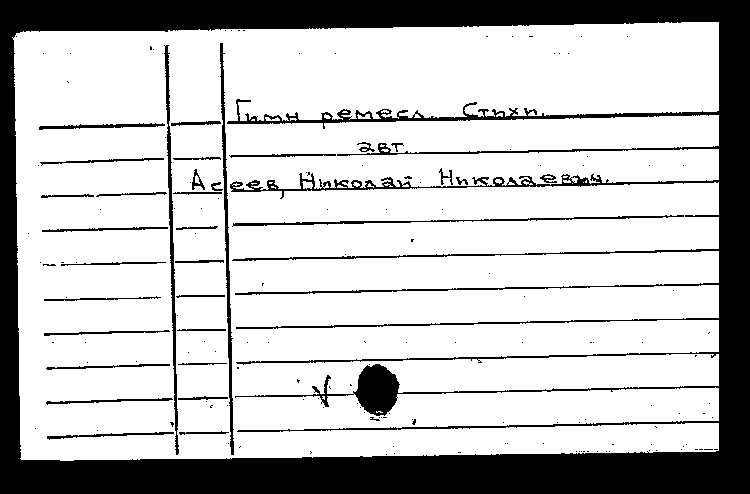 Гимн ремесл. Стихи.
авт.
Асеев, Николай Николаевич.